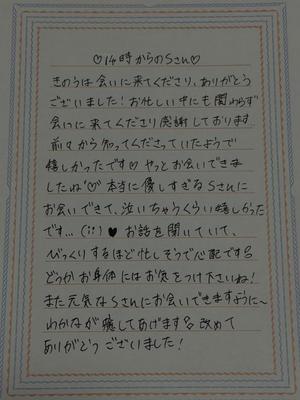 ♡14時からのSさん♡
きのうは会いに来てくださり、ありがとう
ございました！お忙しい中にも関わらず
会いに来てくださり感謝しております
前々から知ってくださっていたようで
嬉しかったです♡やっとお会いできま
したね♡本当に優しすぎるSさんに
お会いできて、泣いちゃうくらい嬉しかった
です...(；；)♥お話を聞いていて、
びっくりするほど忙しそうで心配です
どうかお身体にはお気をつけ下さいね！
また元気なSさんにお会いできますように〜
わかなが癒してあげます 改めて
ありがとうございました！